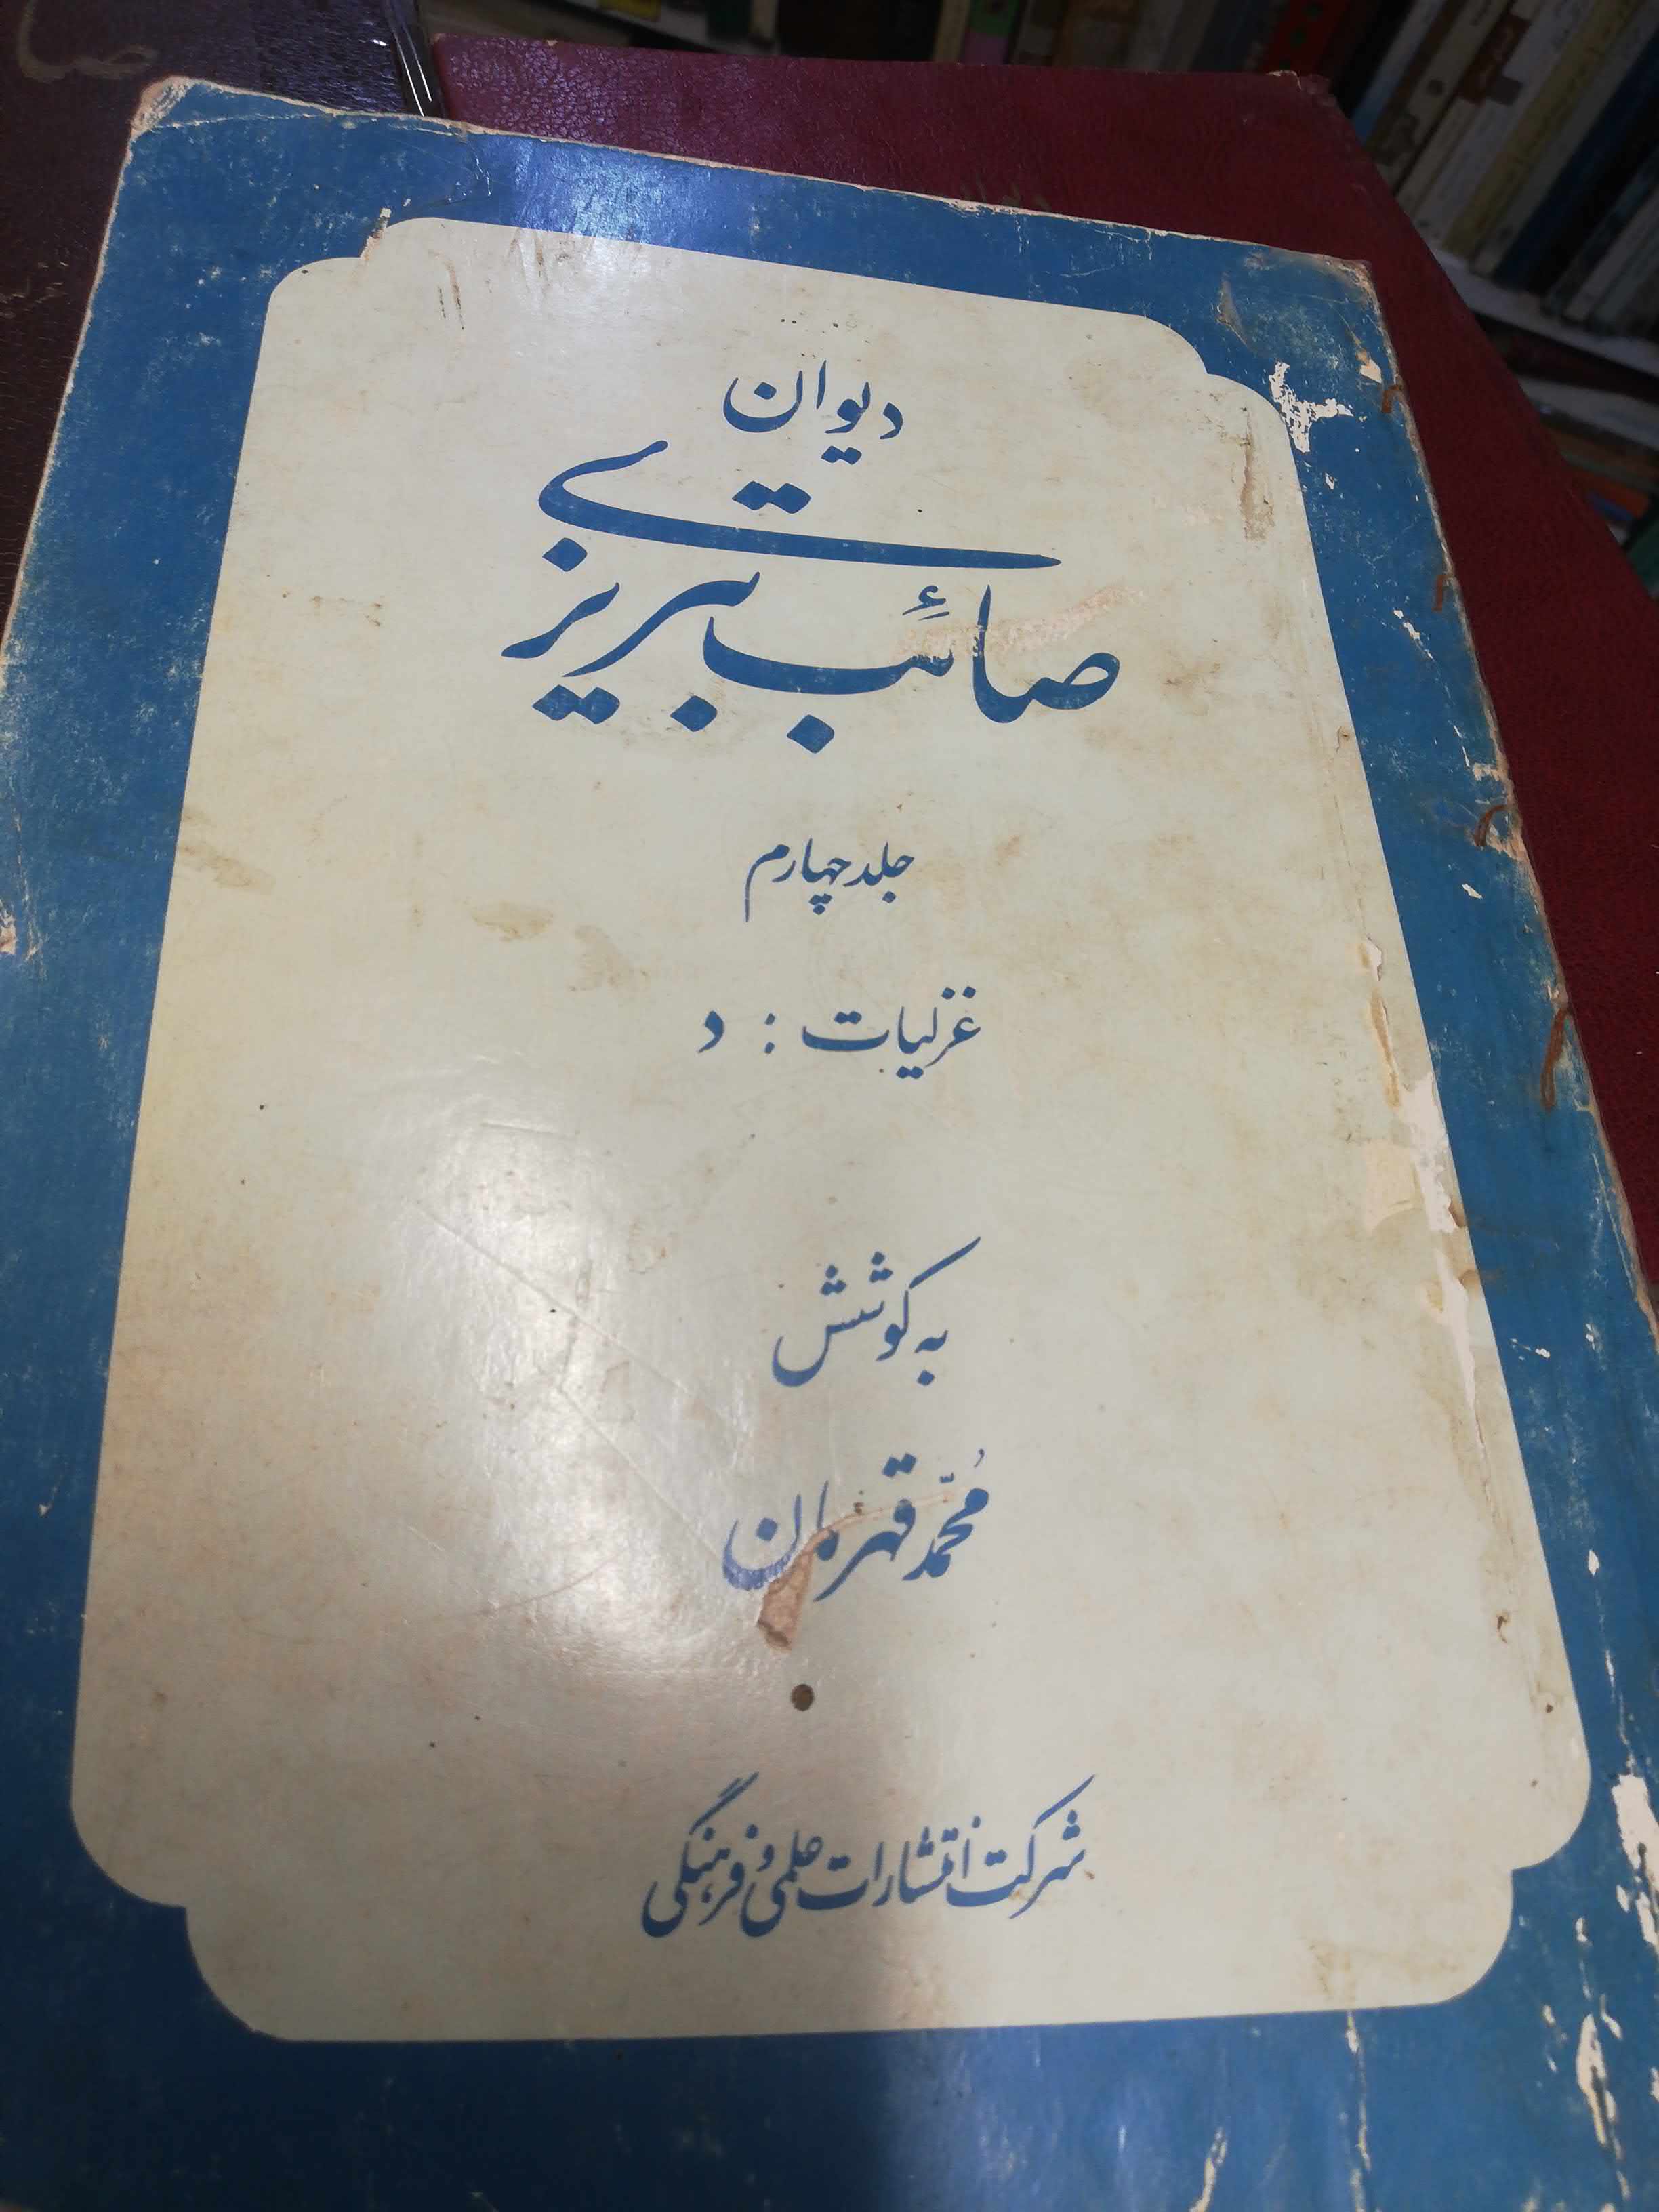 دیوان
صائب تبریزی
جلد چهارم
غزلیات : د
به کوشش
محمّد قهرمان
شرکت انتشارات علمی و فرهنگی